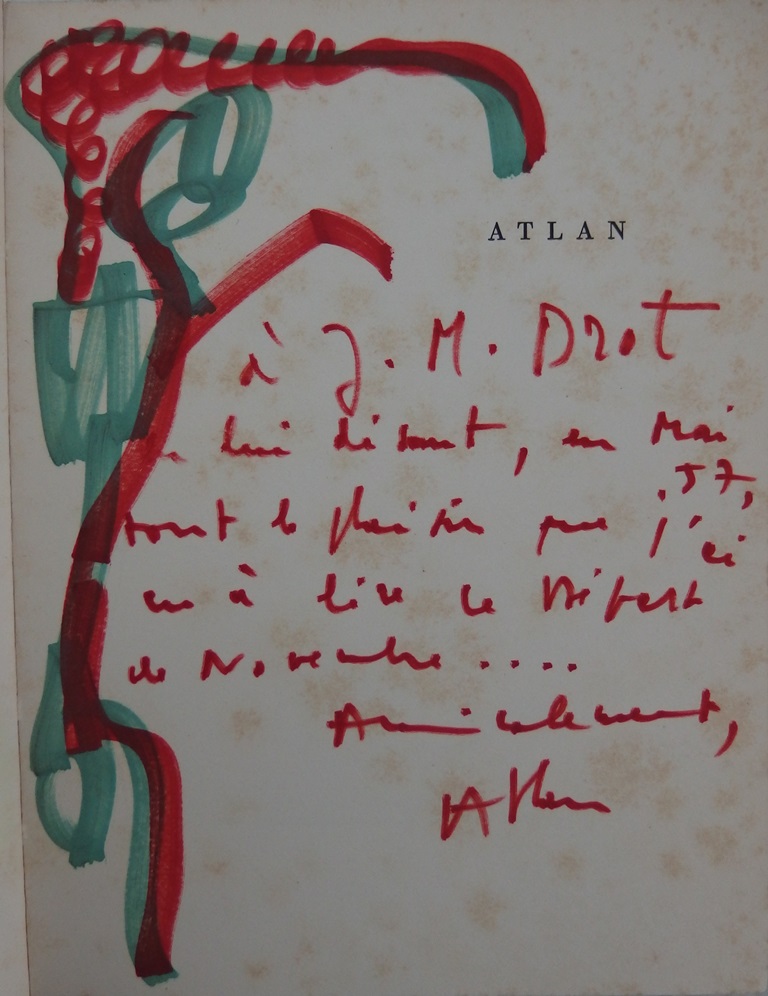 ATLAN
à J. M. Drot
lui disant, en Mai
57,
tout le plaisir que j'ai
eu à lire ce Départ
de Novembre ....
Amicalement,
Atlan